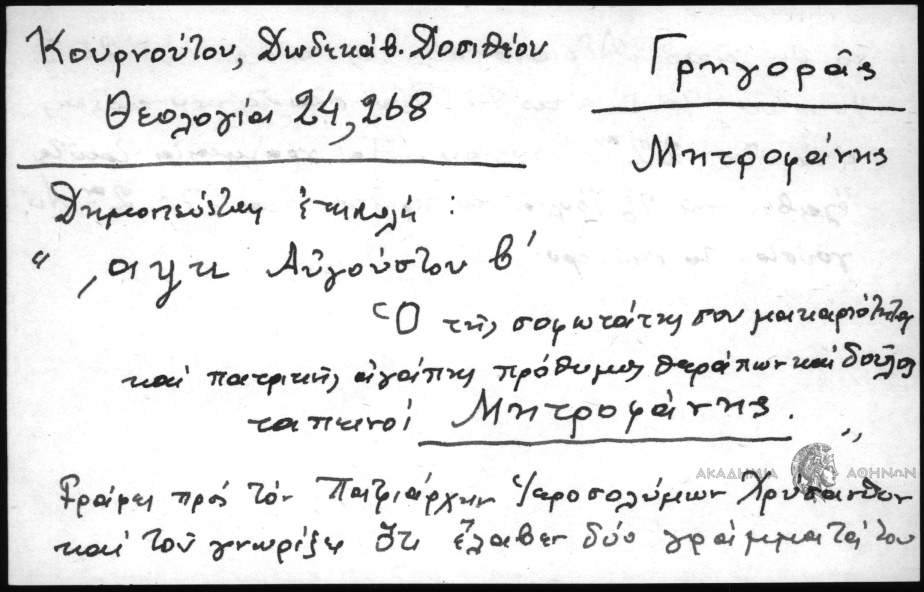 Κουρνούτου, Δωδεκάβ. Δοσιθέου
Θεολογία 24, 268
Γρηγορᾶς
Μητροφάνης
Δημοσιεύεται ἐπιστολή :
“ ,αψκ Αὐγούστου β΄
Ὁ τῆς σοφωτάτης σου μακαριότητος
καί πατρικῆς ἀγάπης πρόθυμος θεράπων καί δοῦλος
ταπεινός Μητροφάνης. ”
ΑΚΑΔΗΜΙΑ ΑΘΗΝΩΝ
Γράφει πρός τόν Πατριάρχην Ἱεροσολύμων Χρύσανθον
καί τοῦ γνωρίζει ὅτι ἔλαβεν δύο γράμματά του